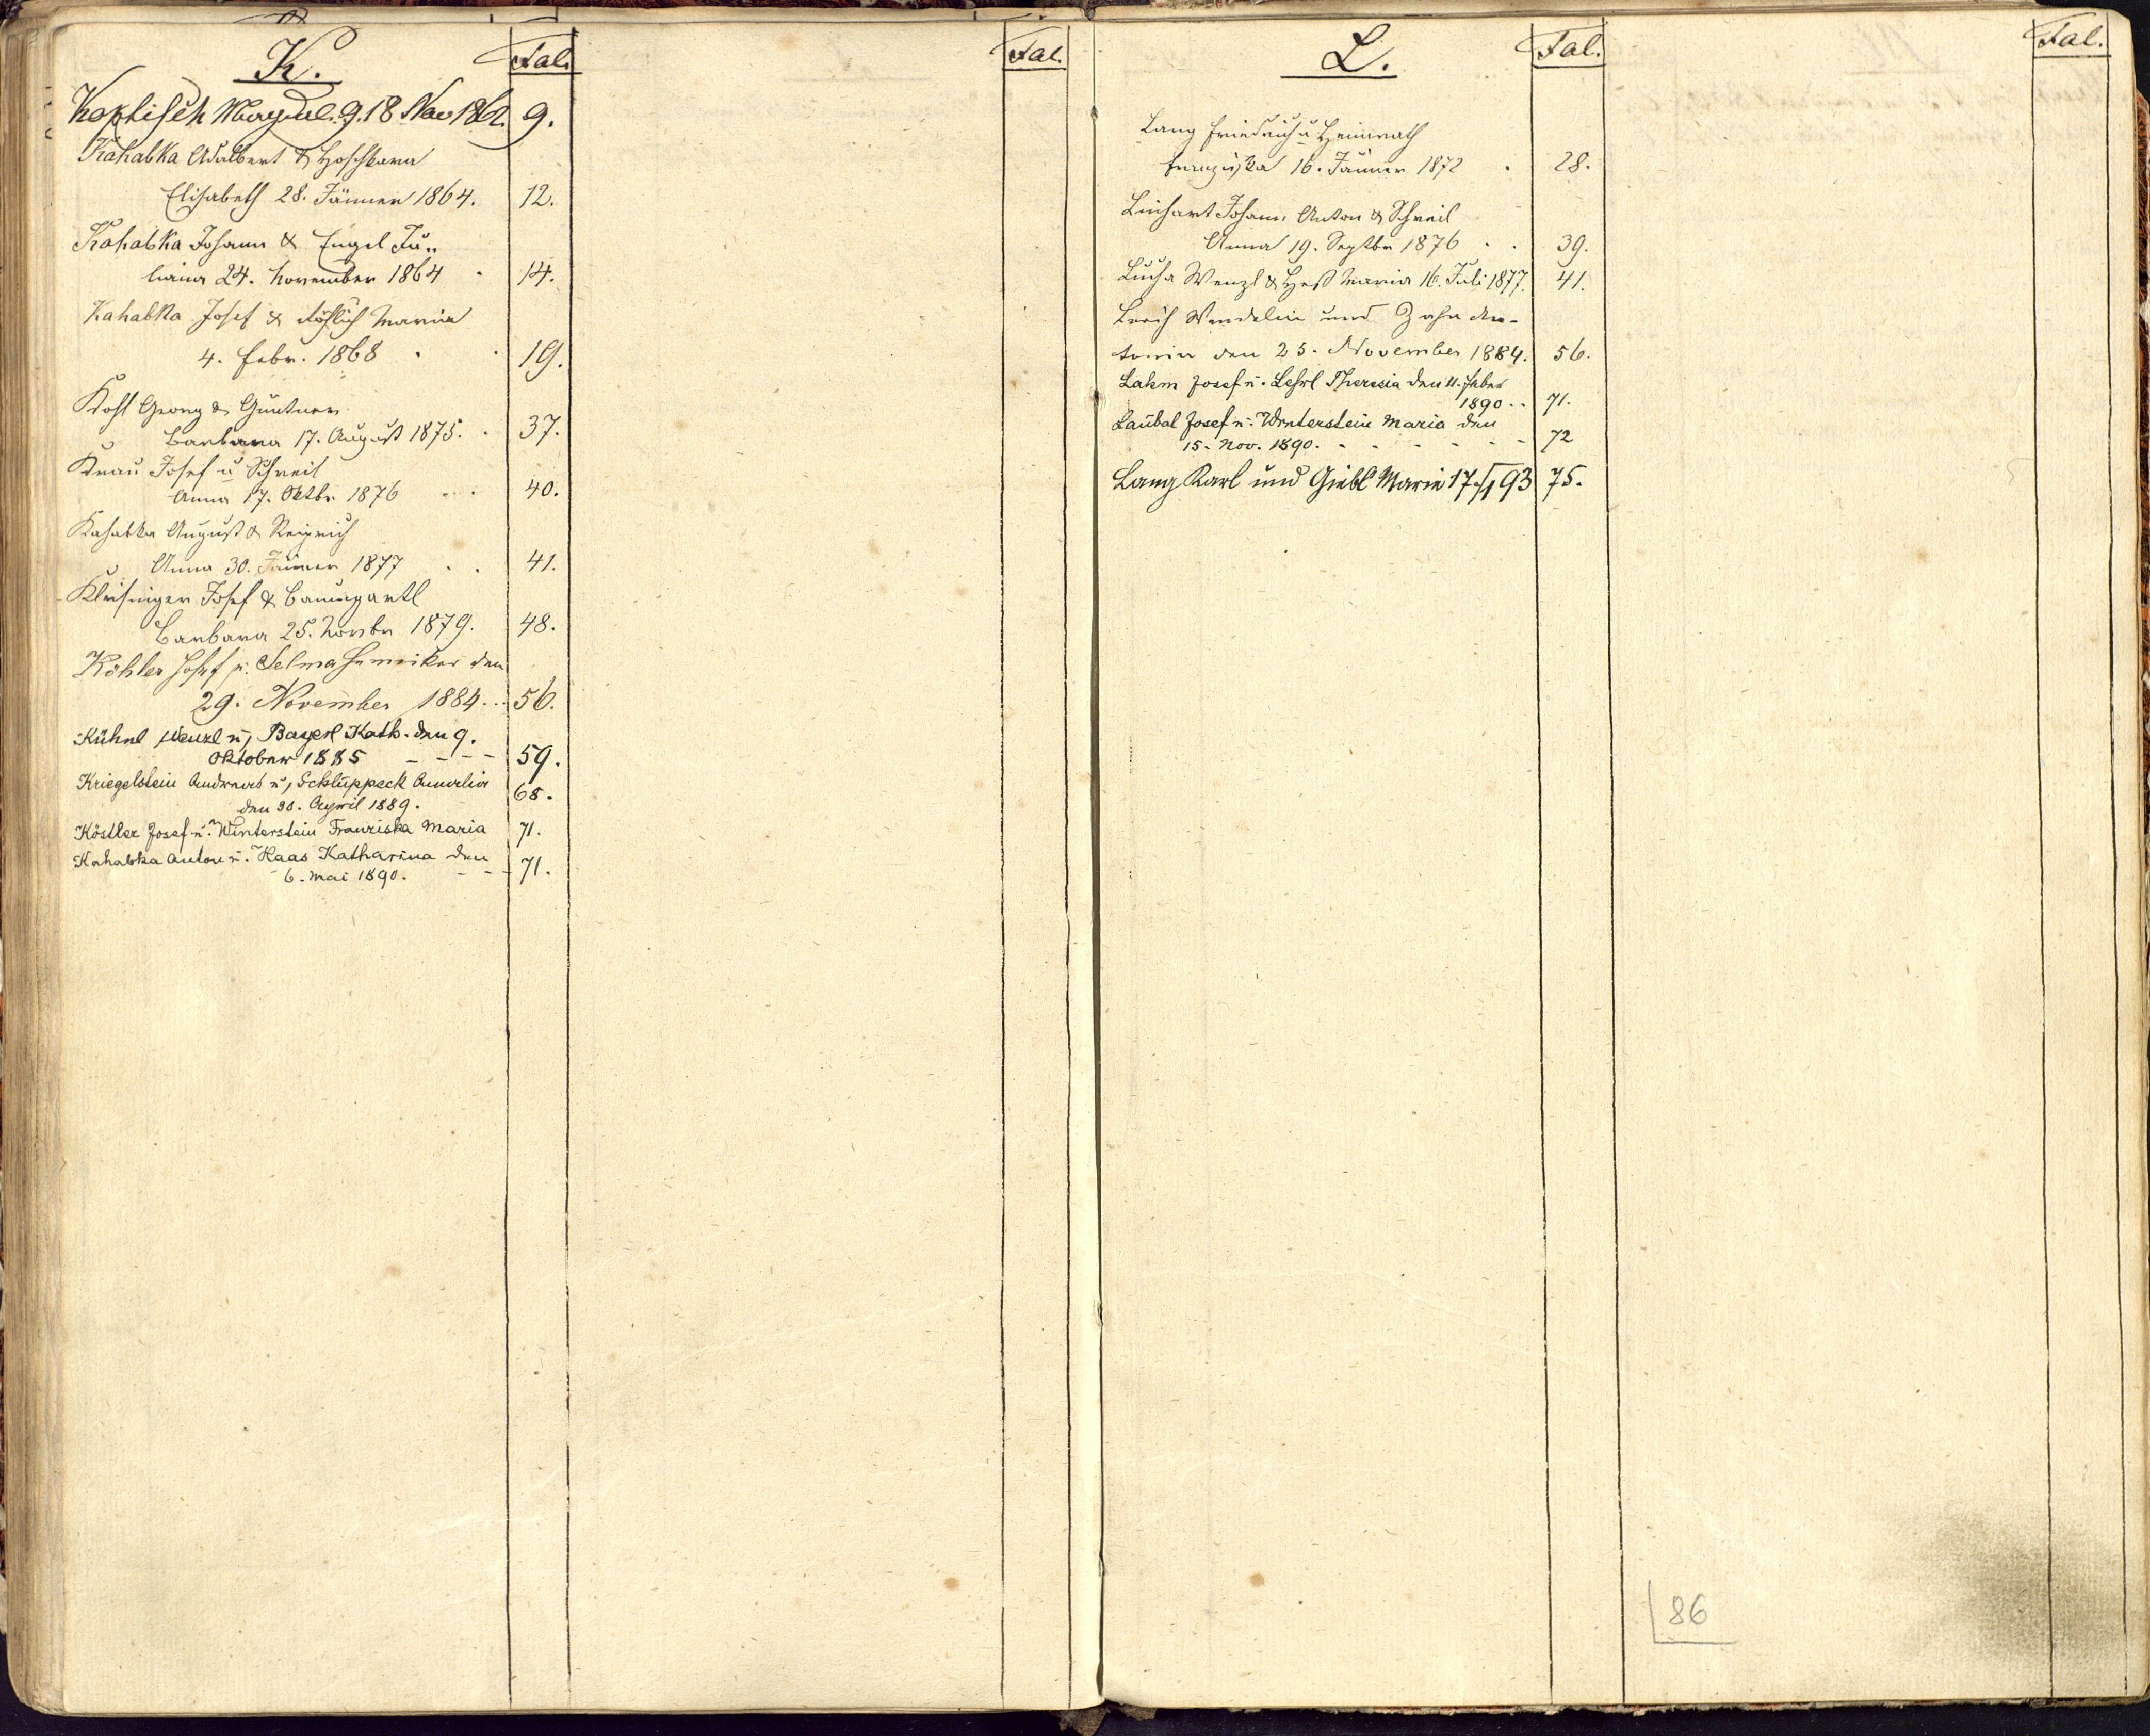 K.
Fol.
Koptisch 18 Nov 1862. 9.
Kahabka Adalbert &
Elisabeth 28. Jänner 1864. 12.
Kahabka Johann & Engel Ju„
liana 24. November 1864 14.
Kahabka Josef & Maria
4. Febr. 1868 19.
Kohl Georg & Güntner
Barbara 17. August 1875. 37.
Krau Josef u Schreil
Anna 17. Oktbr 1876 40.
Kahabka August &
Anna 30. Jänner 1877 41.
Kleisinger Josef & Baumgartl
Barbara 25. Novbr 1879. 48.
Köhler Josef u. Selma den
29. November 1884 56.
Kühnl Wenzl u, Bayerl Kath. den 9.
Oktober 1885 59.
Kriegelstein Andreas u, Schluppeck Amalia
den 30. April 1889. 68.
Köstler Josef u. Winterstein Franziska Maria 71.
Kahabka Anton u. Haas Katharina den
6. Mai 1890. 71.
Fol.
L.
Fol.
Lang Friedrich u Heinrath
Franziska 16. Jänner 1872 28.
Linhart Johann Anton & Schreil
Anna 19. Septbr 1876 39.
Wenzl & Heß Maria 16. Juli 1877. 41.
Wendelin und Zahn An-
tonia den 25. November 1884. 56.
Lahm Josef u. Lehrl Theresia den 11. Feber
1890 71.
Laubal Josef u. Winterstein Maria den
15. Nov. 1890. 72
Lang Karl und Giebl Marie 17./1 93 75.
Fol.
86